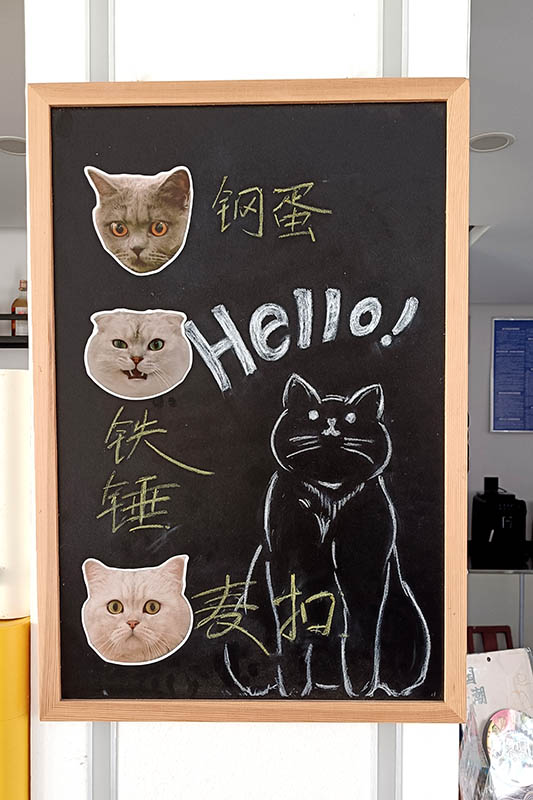 钢蛋
Hello!
铁
锤
麦扣
国
潮